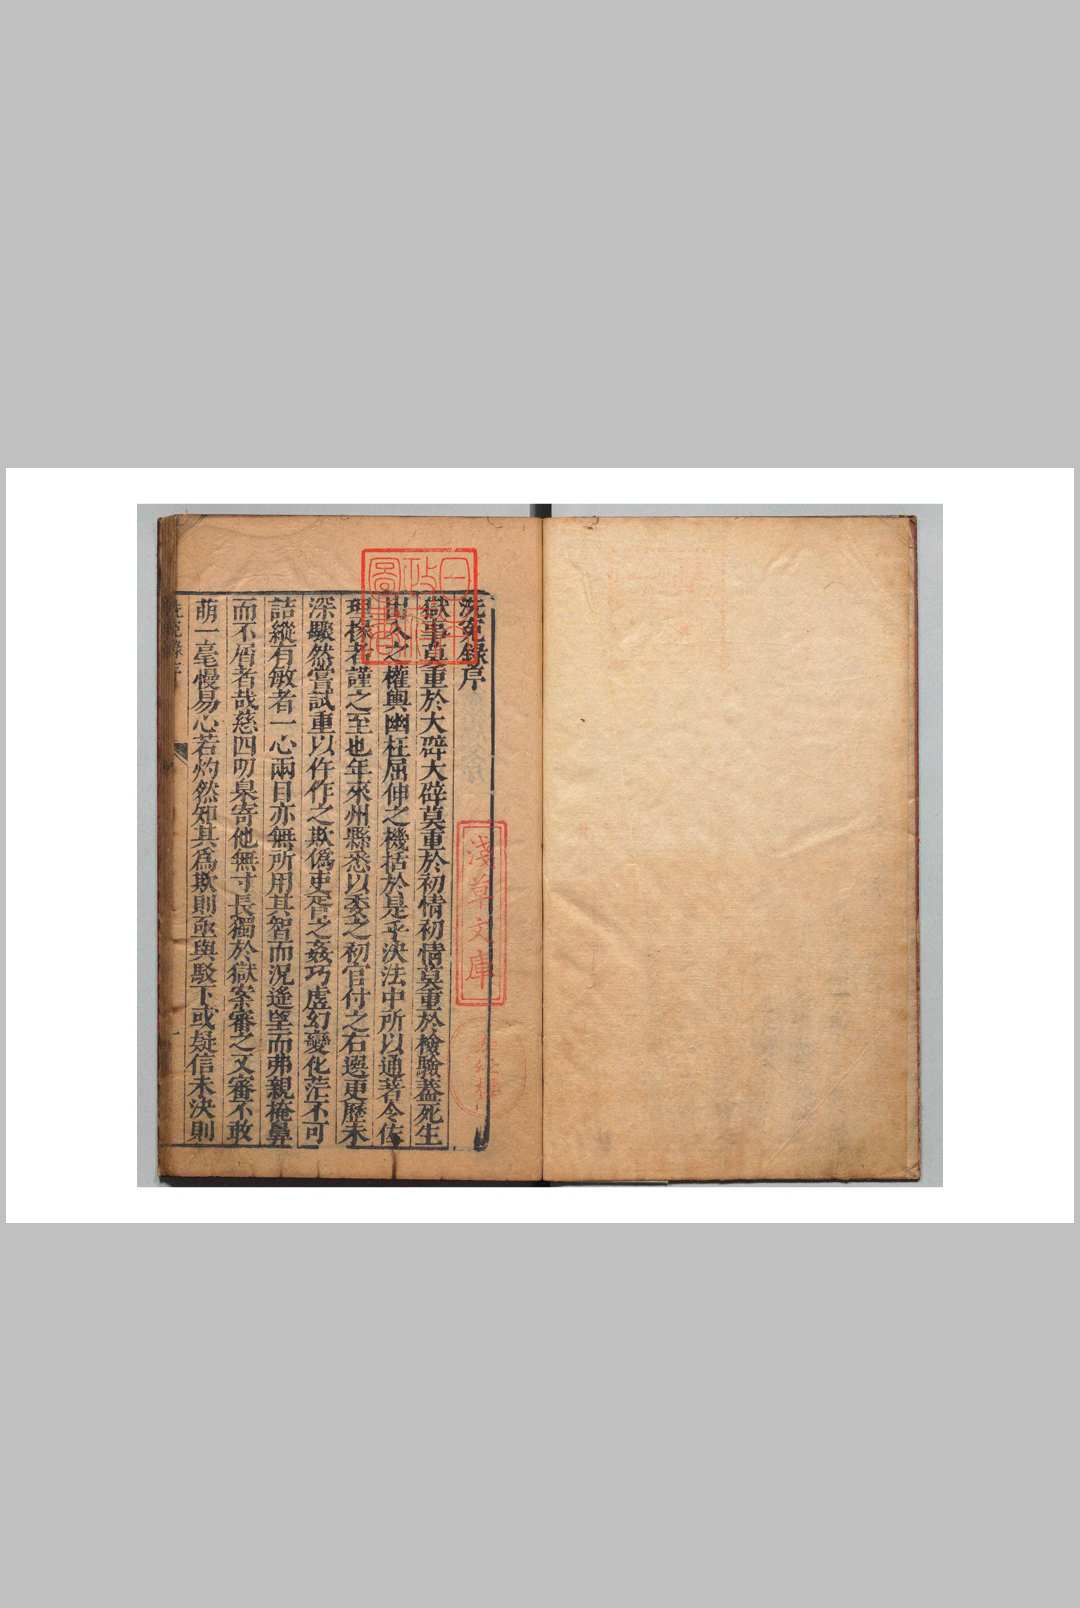 洗寃錄序
獄事莫重於大辟大辟莫重於初情初情莫重於檢驗蓋死生
出入之權輿幽枉屈伸之機括於是乎決法中所以通著令佐
理掾者謹之至也年來州縣悉以委之初官付之右選更歷未
深驟然嘗試重以仵作之欺僞吏胥之姦巧虛幻變化茫不可
詰縱有敏者一心兩目亦無所用其智而況遙望而弗親掩鼻
而不屑者哉慈四叨臬寄他無寸長獨於獄案審之又審不敢
萌一毫慢易心若灼然知其爲欺則亟與駁下或疑信未決則
洗寃錄序
一
日本政府圖書
淺草文庫